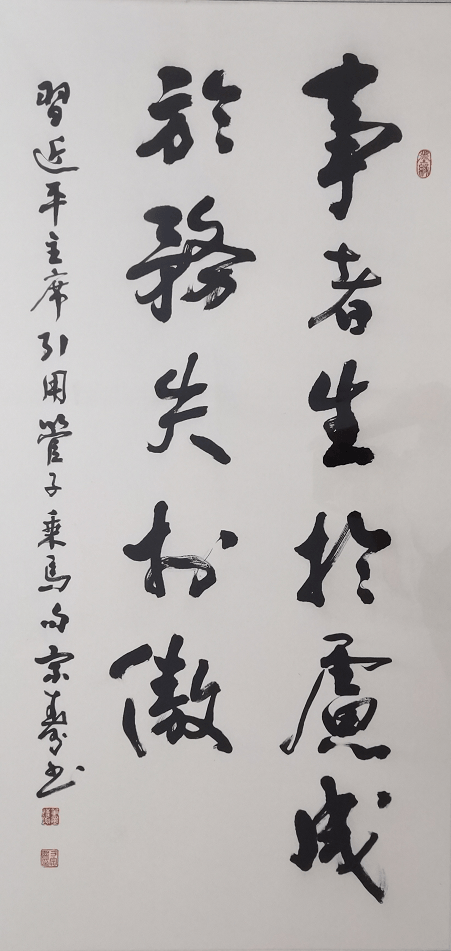 事者生於慮成
於務失於傲
習近平主席引用管子乘馬句宗壽書